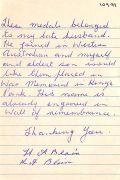 These medals belonged
to my late husband.
He joined in Western
Australia and myself
and eldest son would
like them placed in
War Memorial in Kings
Park. His name is
already engraved in
Wall of remembrance.
Thanking You.